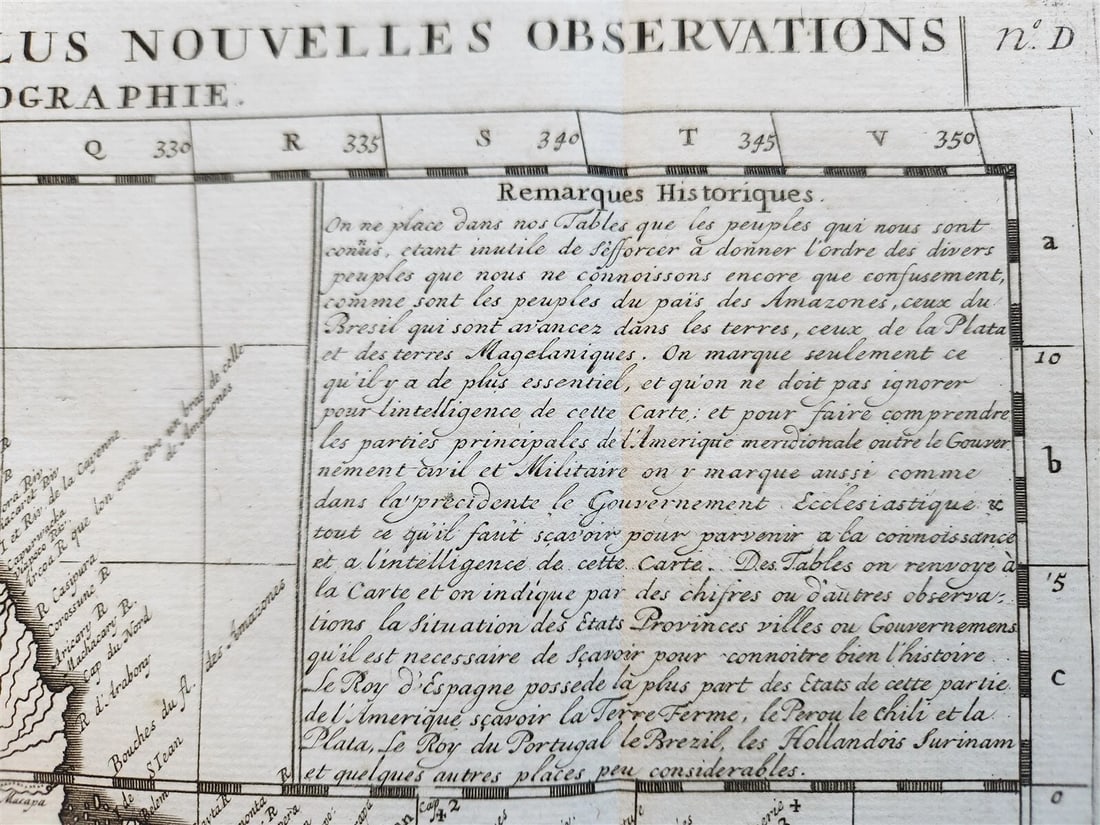 LUS NOUVELLES OBSERVATIONS
n.º D
OGRAPHIE.
Q 330 R 335 S 340 T 345 V 350
Remarques Historiques.
On ne place dans nos Tables que les peuples qui nous sont
connûs, etant inutile de s'efforcer à donner l'ordre des divers
peuples que nous ne connoissons encore que confusement,
comme sont les peuples du païs des Amazones, ceux du
Bresil qui sont avancez dans les terres, ceux de la Plata
et des terres Magelaniques. On marque seulement ce
qu'il y a de plus essentiel, et qu'on ne doit pas ignorer
pour l'intelligence de cette Carte; et pour faire comprendre
les parties principales de l'Amerique meridionale outre le Gouver
nement civil et Militaire on y marque aussi comme
dans la precidente le Gouvernement Ecclesiastique &
tout ce qu'il faut sçavoir pour parvenir a la connoissance
et a l'intelligence de cette Carte. Des Tables on renvoye à
la Carte et on indique par des chifres ou d'autres observa-
tions la situation des Etats Provinces villes ou Gouvernemens
qu'il est necessaire de sçavoir pour connoitre bien l'histoire.
Le Roy d'Espagne possede la plus part des Etats de cette partie
de l'Amerique sçavoir la Terre Ferme, le Perou le chili et la
Plata, Le Roy du Portugal le Brezil, les Hollandois Surinam
et quelques autres places peu considerables.
a
10
b
'5
c
0
de la Cayenne
Arcoa R que lon croit être un bras de celle
de Amazones
R Casipura
Corossune R
Aricary R
Machacary R.
Cap du Nord
R d'Arabony
Bouches du fl. des Amazones
S Iean
R
Macapa
Cap
42